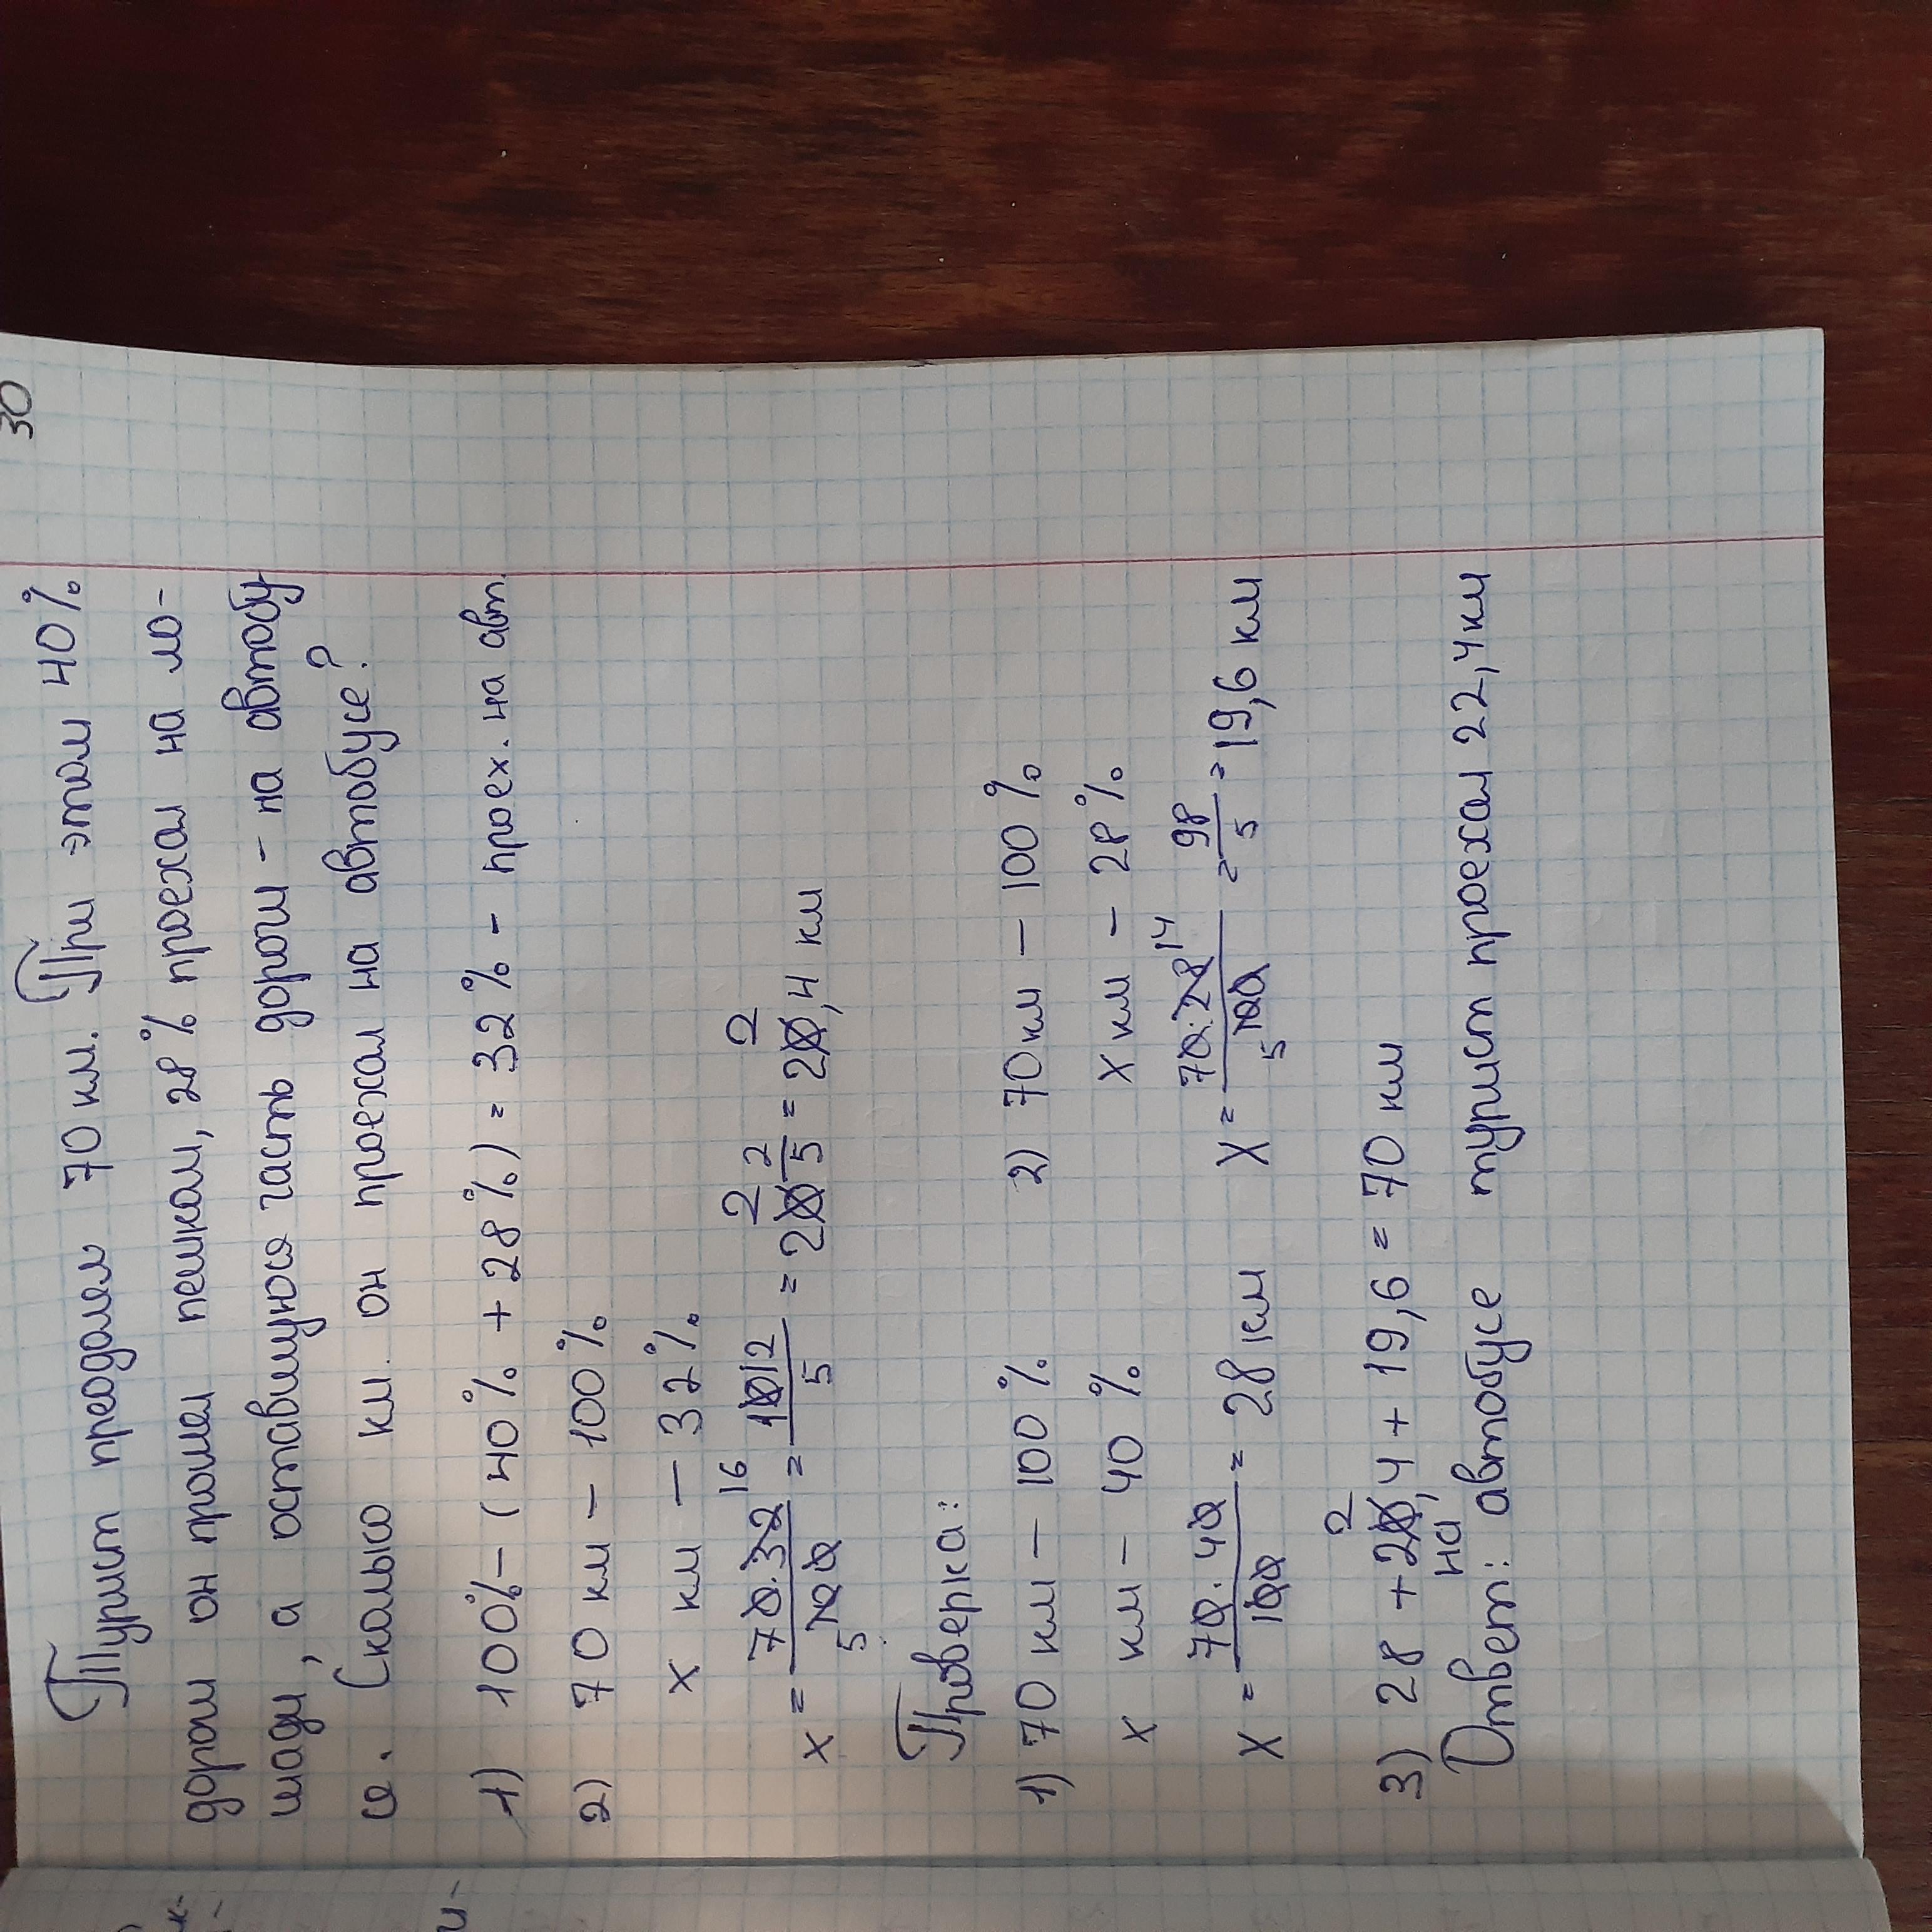 30
Турист преодолел 70 км. При этом 40%
дороги он прошел пешком, 28% проехал на ло-
шади, а оставшуюся часть дороги - на автобу
се. Сколько км. он проехал на автобусе?
1) 100% - (40% + 28%) = 32% - проех. на авт.
2) 70 км - 100%
x км - 32%
x = 70·32 16 / 5 100 = 112 / 5 = 22 2/5 = 22,4 км
Проверка:
1) 70 км - 100% 2) 70 км - 100%
x км - 40% x км - 28%
x = 70·40 / 100 = 28 км x = 70·28 14 / 5 100 = 98 / 5 = 19,6 км
3) 28 + 22,4 + 19,6 = 70 км
Ответ: на автобусе турист проехал 22,4 км